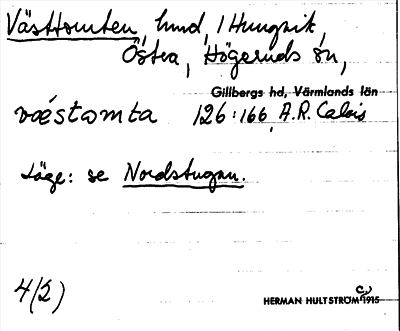 Västtomten, hmd, 1 Hungsvik,
Östra, Högeruds sn,
Gillbergs hd, Värmlands län
væstomta 126:166, A.R. Calais
Läge: se Nordstugan.
4(2)
HERMAN HULTSTRÖM (c) 1915